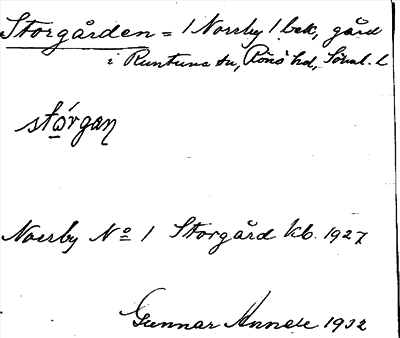 Storgården = 1 Norrby 1 bek, gård
i Runtuna sn, Rönö hd, Söml. l.
stórgan
Norrby No 1 Storgård kb. 1927
Gunnar 1932